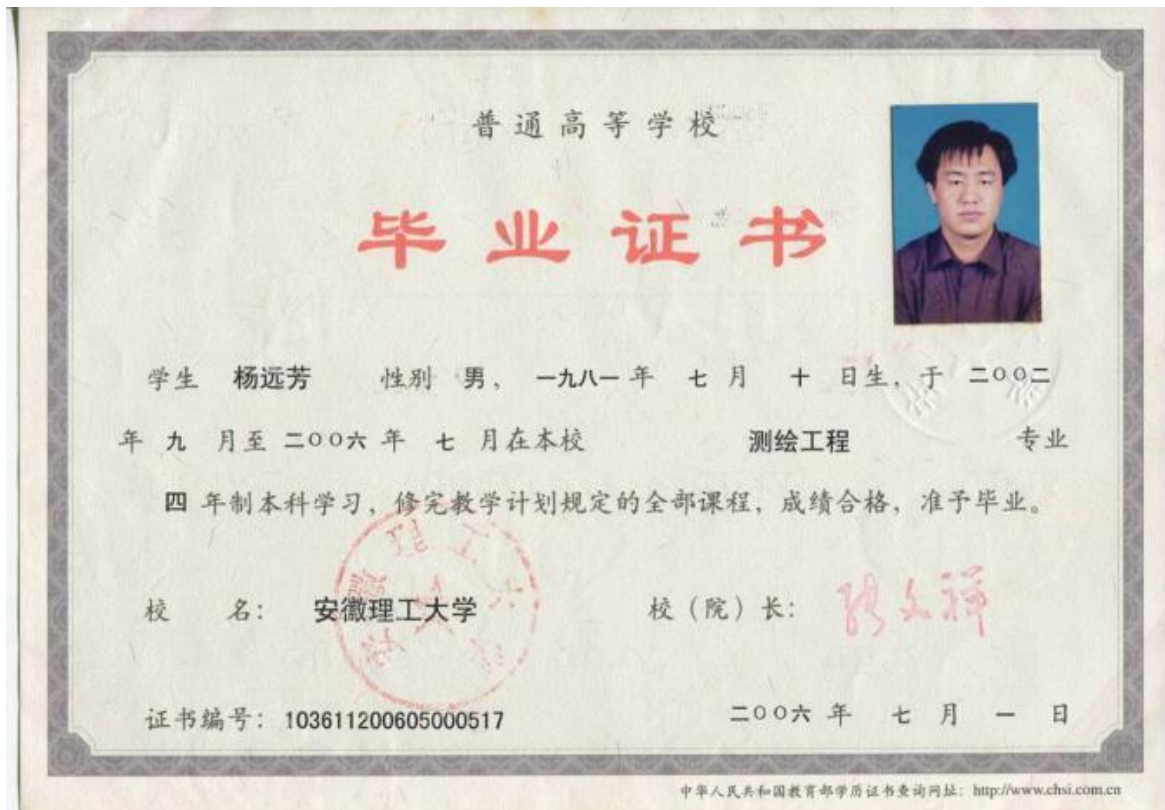 普通高等学校
毕业证书
学生 杨远芳 性别 男， 一九八一 年 七 月 十 日生，于 二〇〇二
年 九 月至 二〇〇六 年 七 月在本校 测绘工程 专业
四 年制本科学习，修完教学计划规定的全部课程，成绩合格，准予毕业。
安徽理工大学
校 名： 安徽理工大学 校（院）长： 张文祥
证书编号： 103611200605000517 二〇〇六 年 七 月 一 日
中华人民共和国教育部学历证书查询网址：http://www.chsi.com.cn